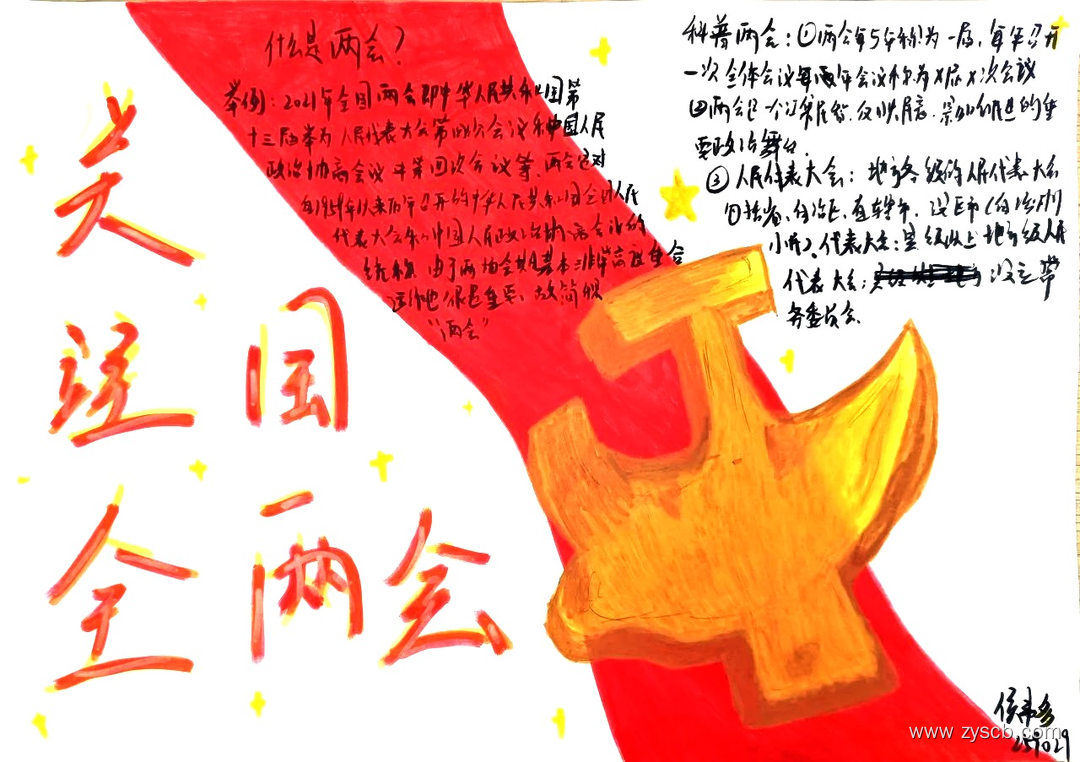 什么是两会？
举例：2021年全国两会即中华人民共和国第
十三届举为人民代表大会第四次会议和中国人民
政治协商会议 第四次会议等，两会是对
自1959年以来历年召开的中华人民共和国全国人民
代表大会和中国人民政治协商会议的
统称 由于两场会期基本
运作也很是重要 故简称
“两会”
科普两会：①两会每5年称为一届，每年召开
一次全体会议每年会议称为X届X次会议
②两会是一个
要政治舞台.
③人民代表大会：地方各级的人民代表大会
包括省、自治区、直辖市、设区市（自治州
代表大会：县级以上地方级人民
代表大会： 设立常
务委员会.
关
注 国
全 两会
www.zyscb.com
257029